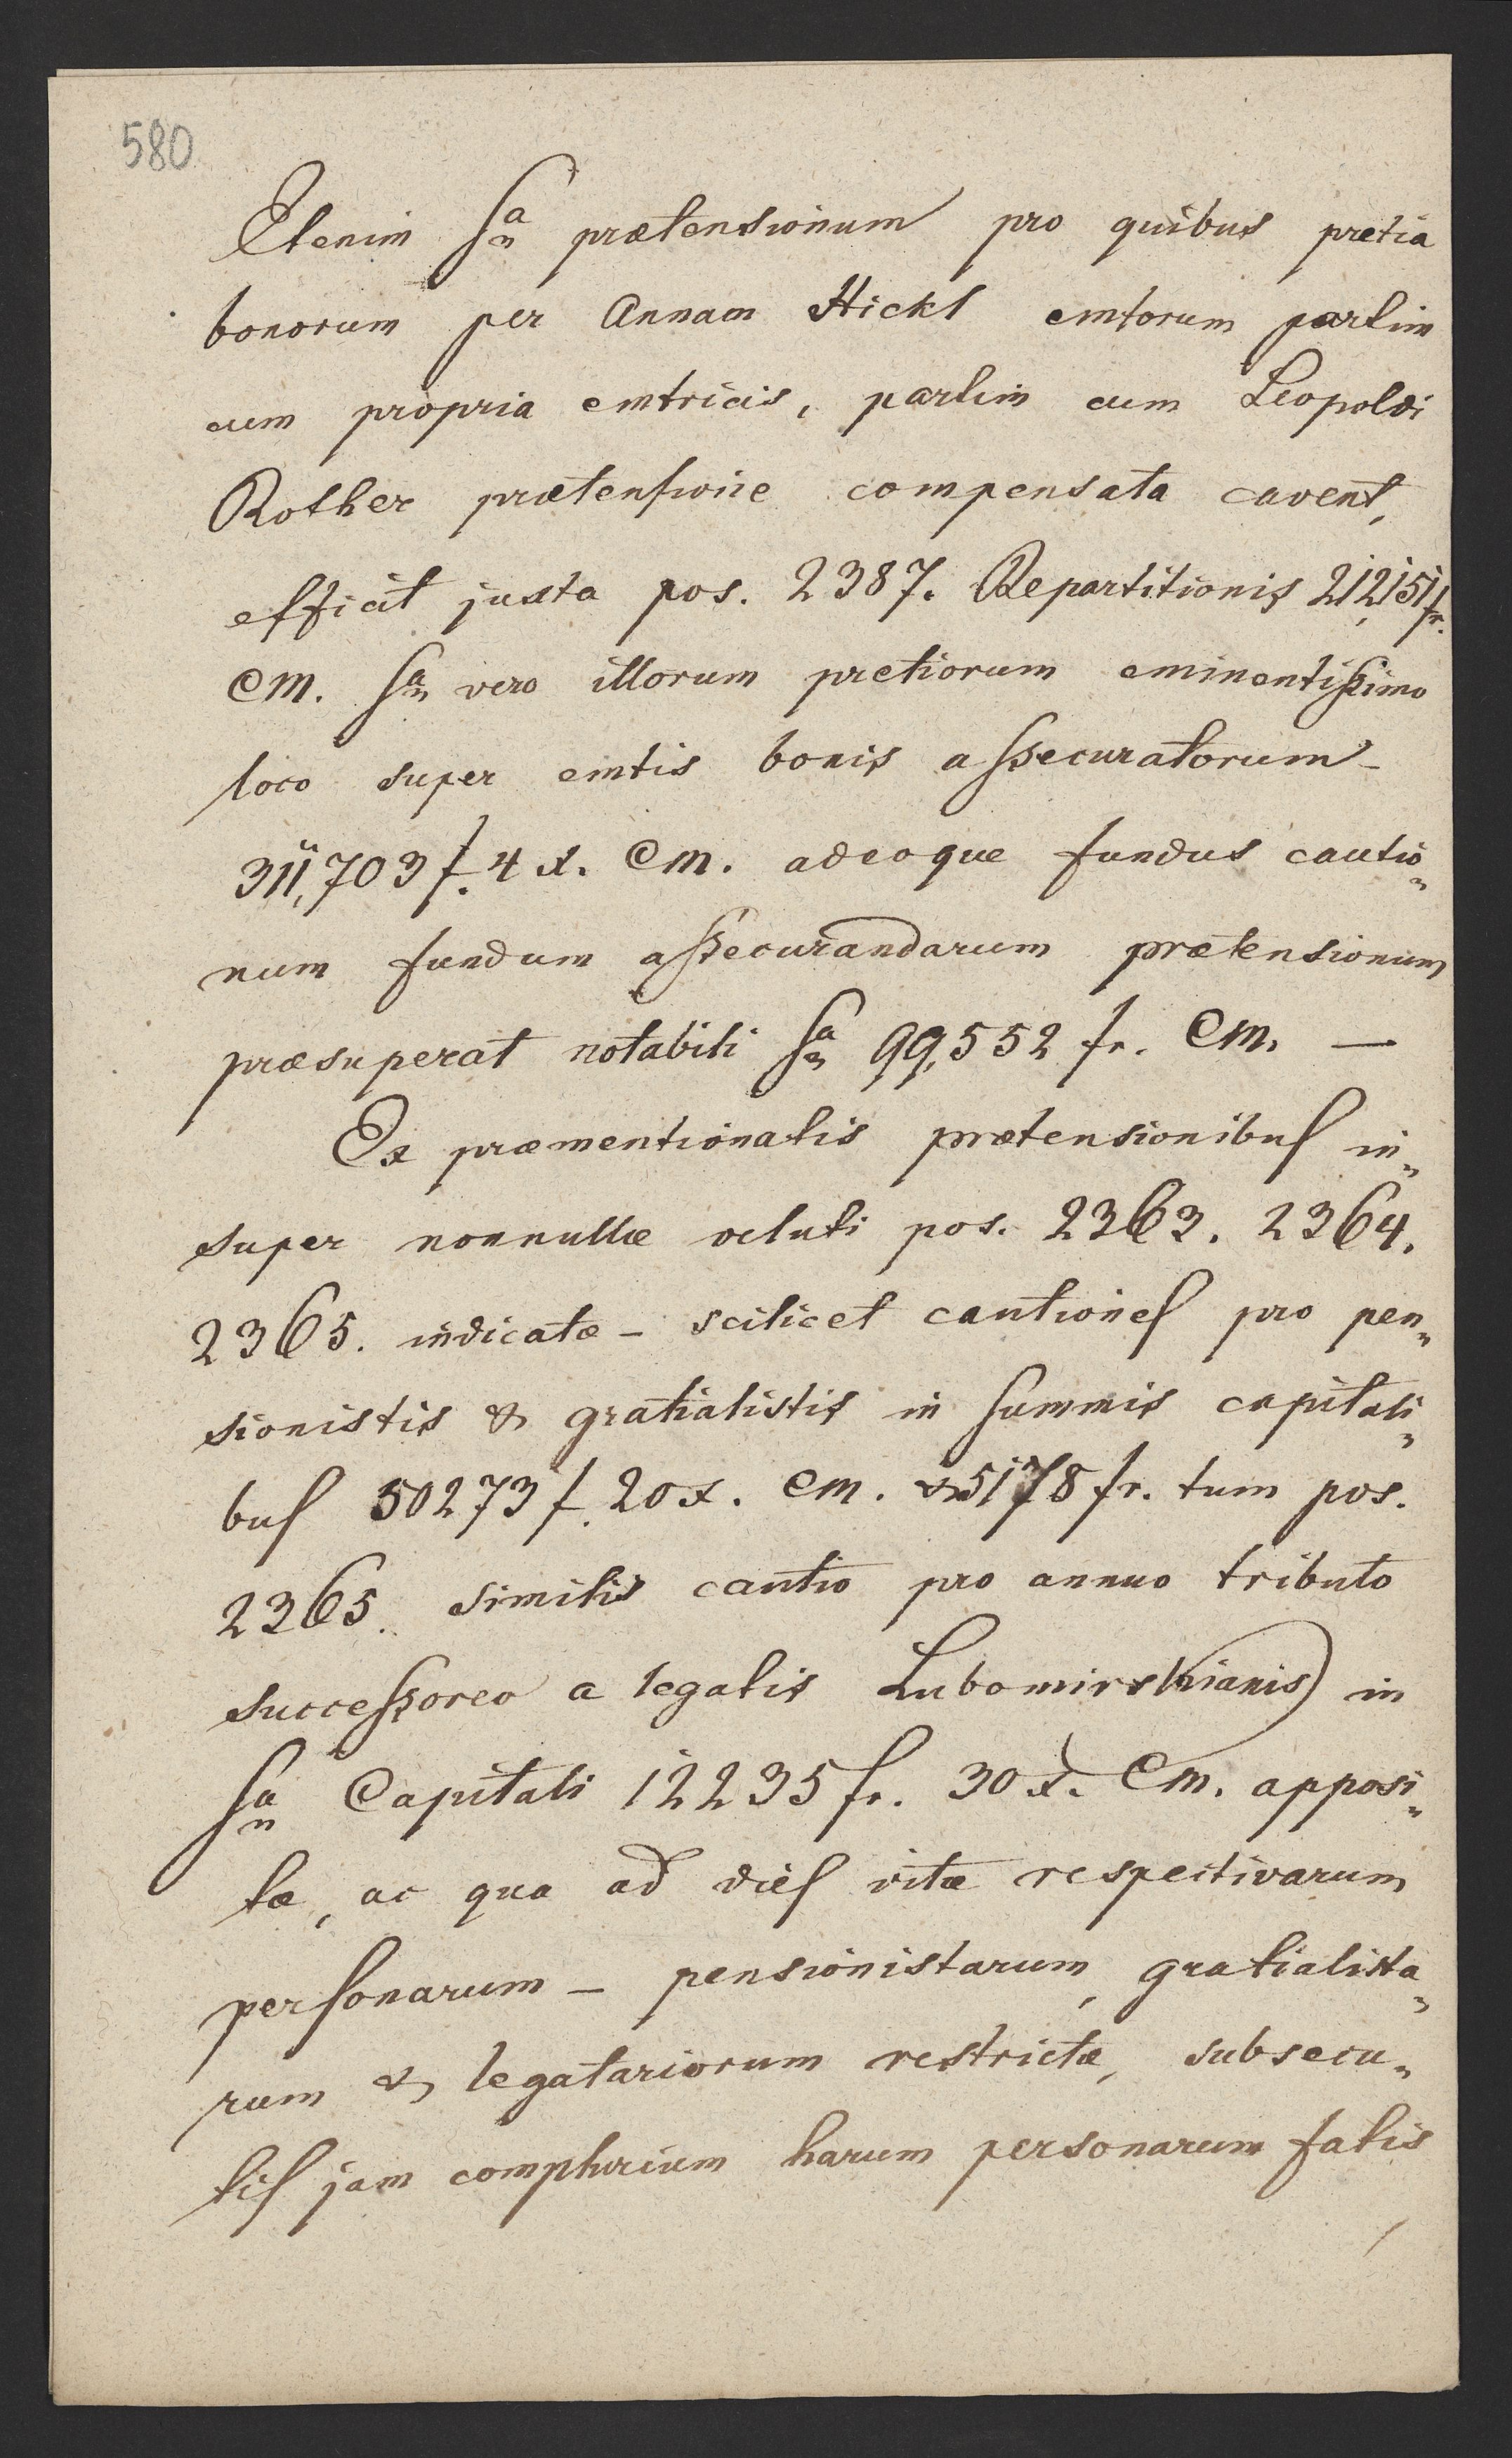 580
Etenim Sa prætensionum pro quibus pretia
bonorum per Annam Hickl emtorum partim
cum propria emtricis, partim cum Leopoldi
Rother prætensione compensata cavent,
efficit juxta pos. 2387. Repartitionis 212,151 fr.
CM. Sa vero illorum pretiorum eminentissimo
loco super emtis bonis assecuratorum –
311,703 f. 4 x. CM. adeoque fundus cautio„
num fundum assecurandarum prætensionum
præsuperat notabili Sa 99,552 fr. CM. —
Ex præmentionatis prætensionibus in„
super nonnullæ veluti pos. 2363. 2364.
2365. indicatæ – scilicet cautiones pro pen„
sionistis & gratialistis in summis capitali„
bus 50273 f. 20 x. CM. & 5178 fr. tum pos.
2365. similis cautio pro annuo tributo
successoreo a legatis Lubomirskianis) in
Sa Capitali 12235 fr. 30 x. CM. apposi„
tæ, ac qua ad dies vitæ respectivarum
personarum – pensionistarum, gratialista„
rum & legatariorum restrictæ, subsecu„
tis jam complurium harum personarum fatis